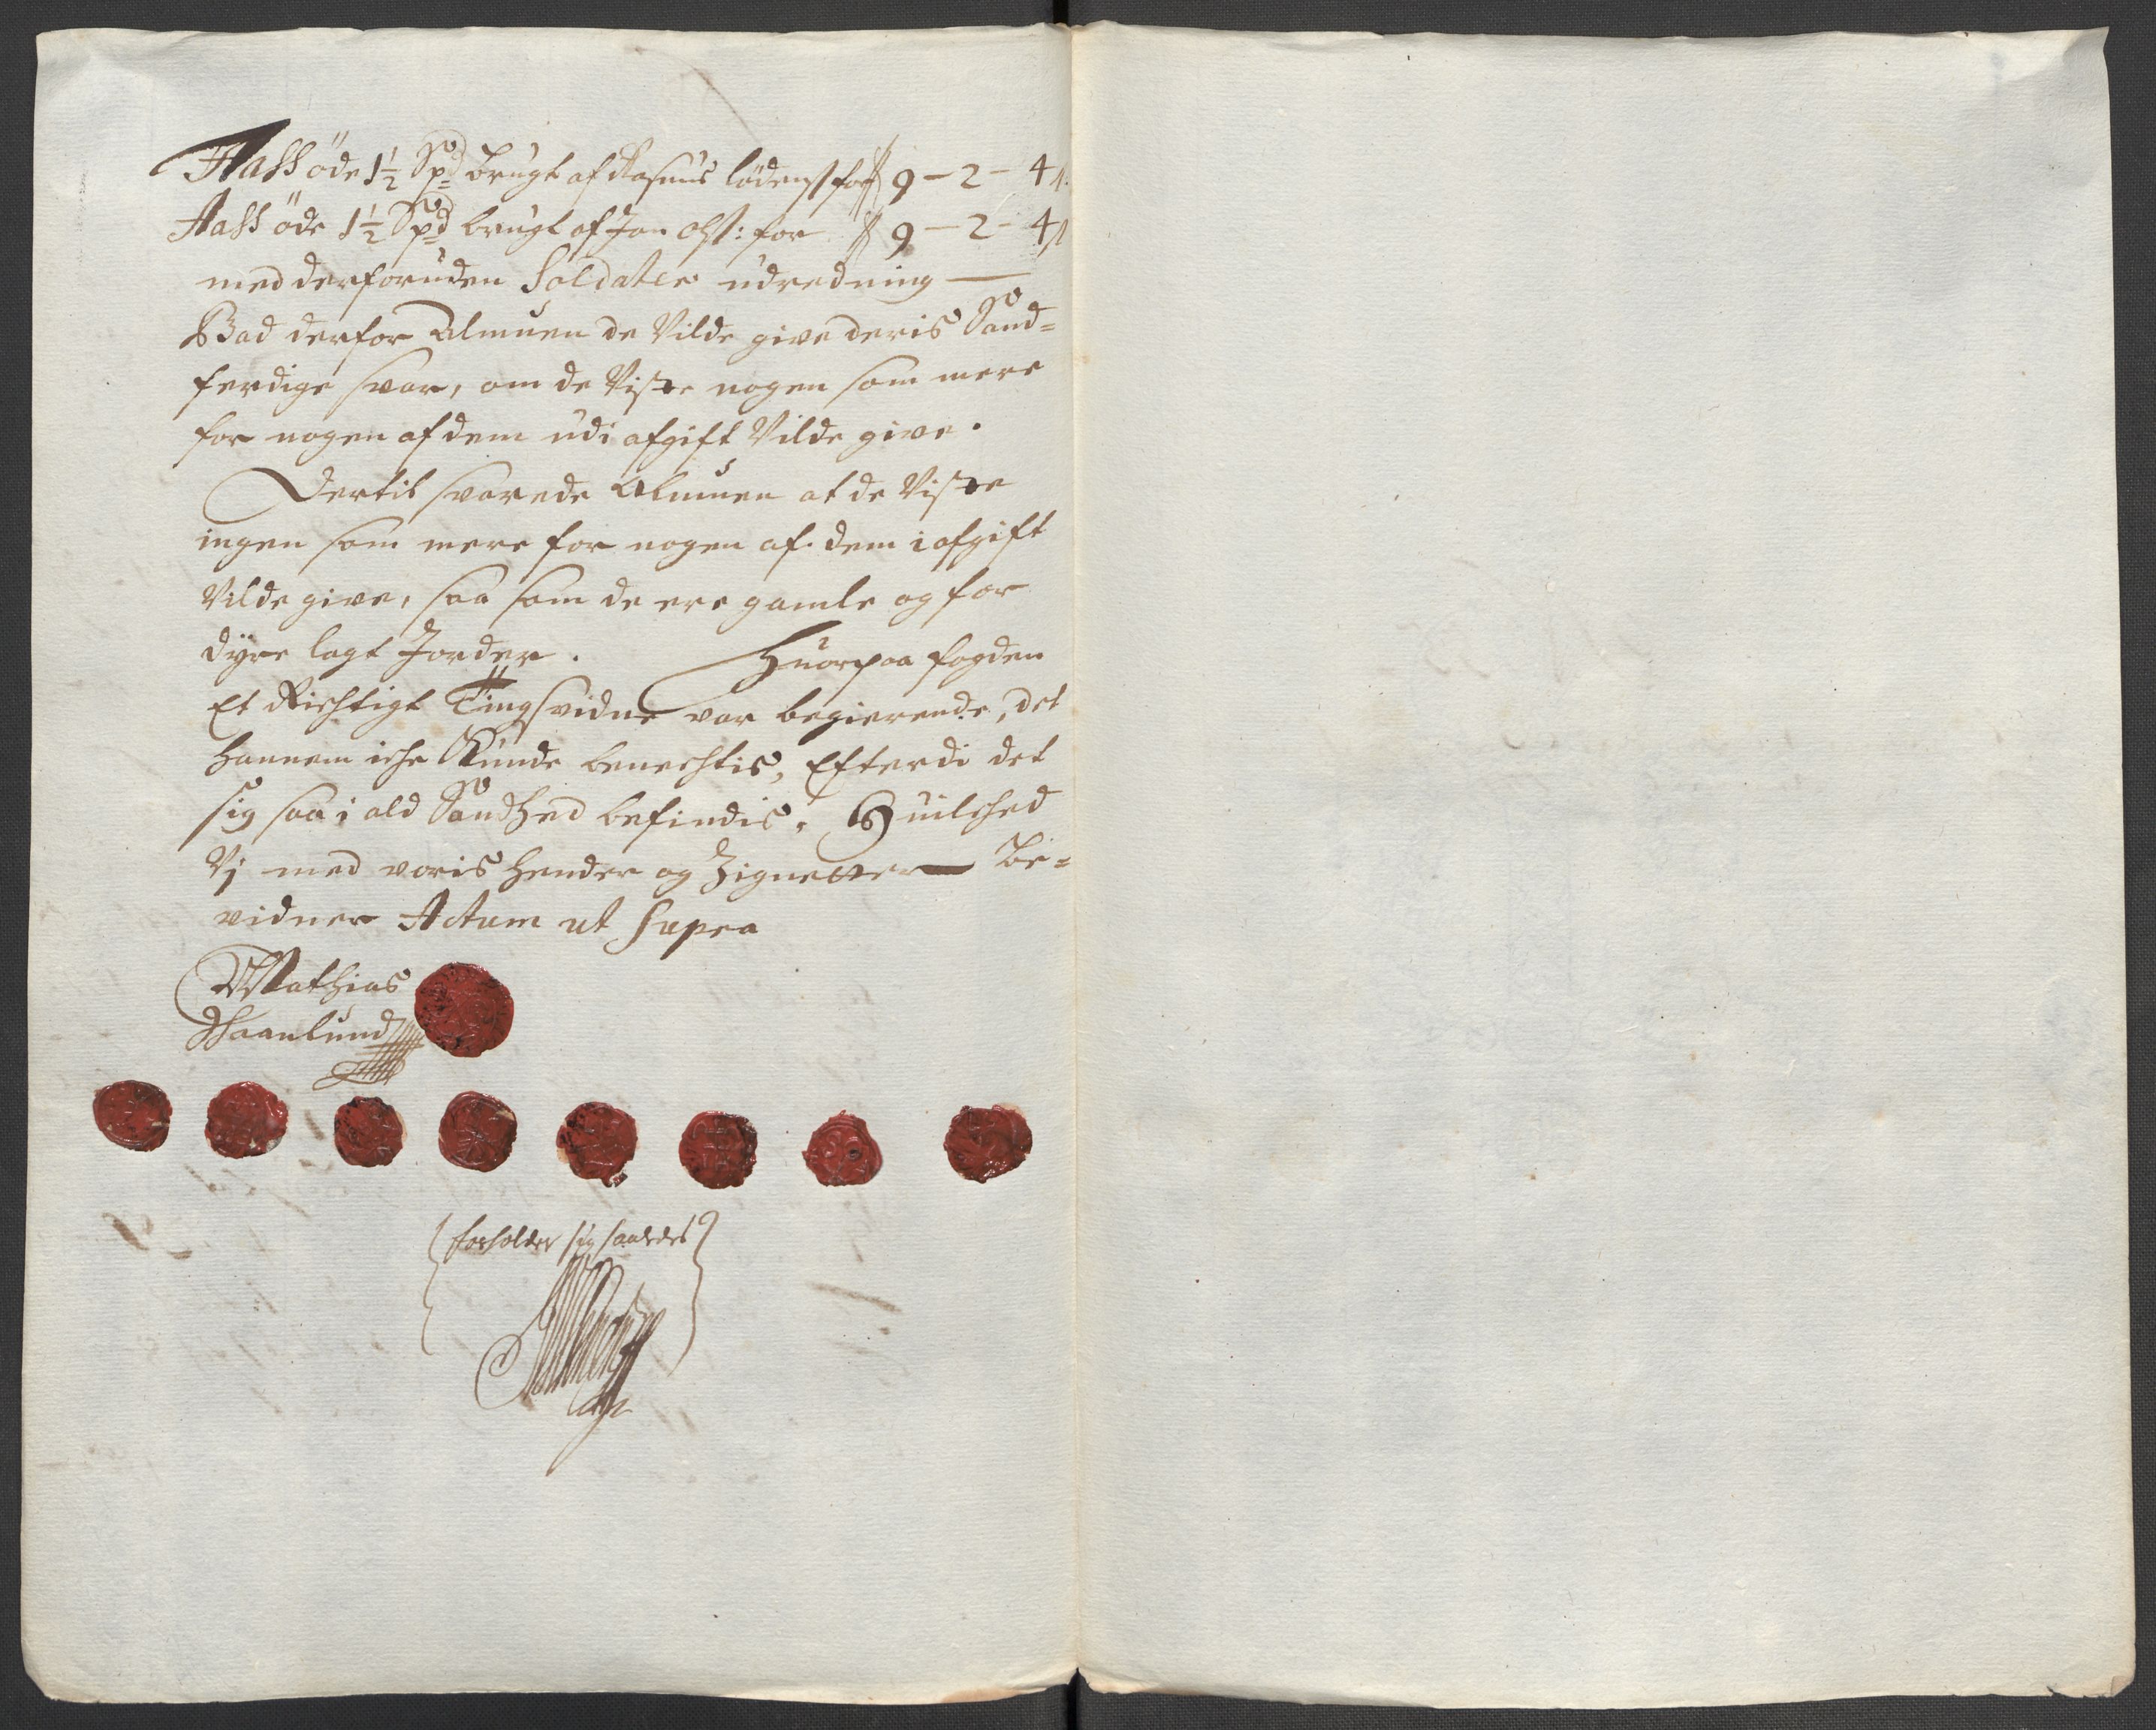 Aass öde 1½ Spd brugt af Rasmus lödens for 9 - 2 - 4
Aass öde 1½ Spd brugt af Jon Ols: for 9 - 2 - 4
med derforuden Soldater udredning —
Bad derfor Almuen de Vilde give deris Sand=
ferdige svar, om de Viste nogen som mere
for nogen af dem udi afgift Vilde give.
Dertil svarede Almuen at de Viste
ingen som mere for nogen af dem i afgift
Vilde give, saa som de ere gamle og for
dyre lagt Jorder. Huorpaa fogden
Et Richtigt Tingsvidne var begierende, det
hannem iche Kunde benechtis, Efterdi det
sig saa i ald Sandhed befindis, Huilched
Vj med voris hender og Zignetter Be=
vidner Actum ut Supra
Mathias
forholder sig saaledes